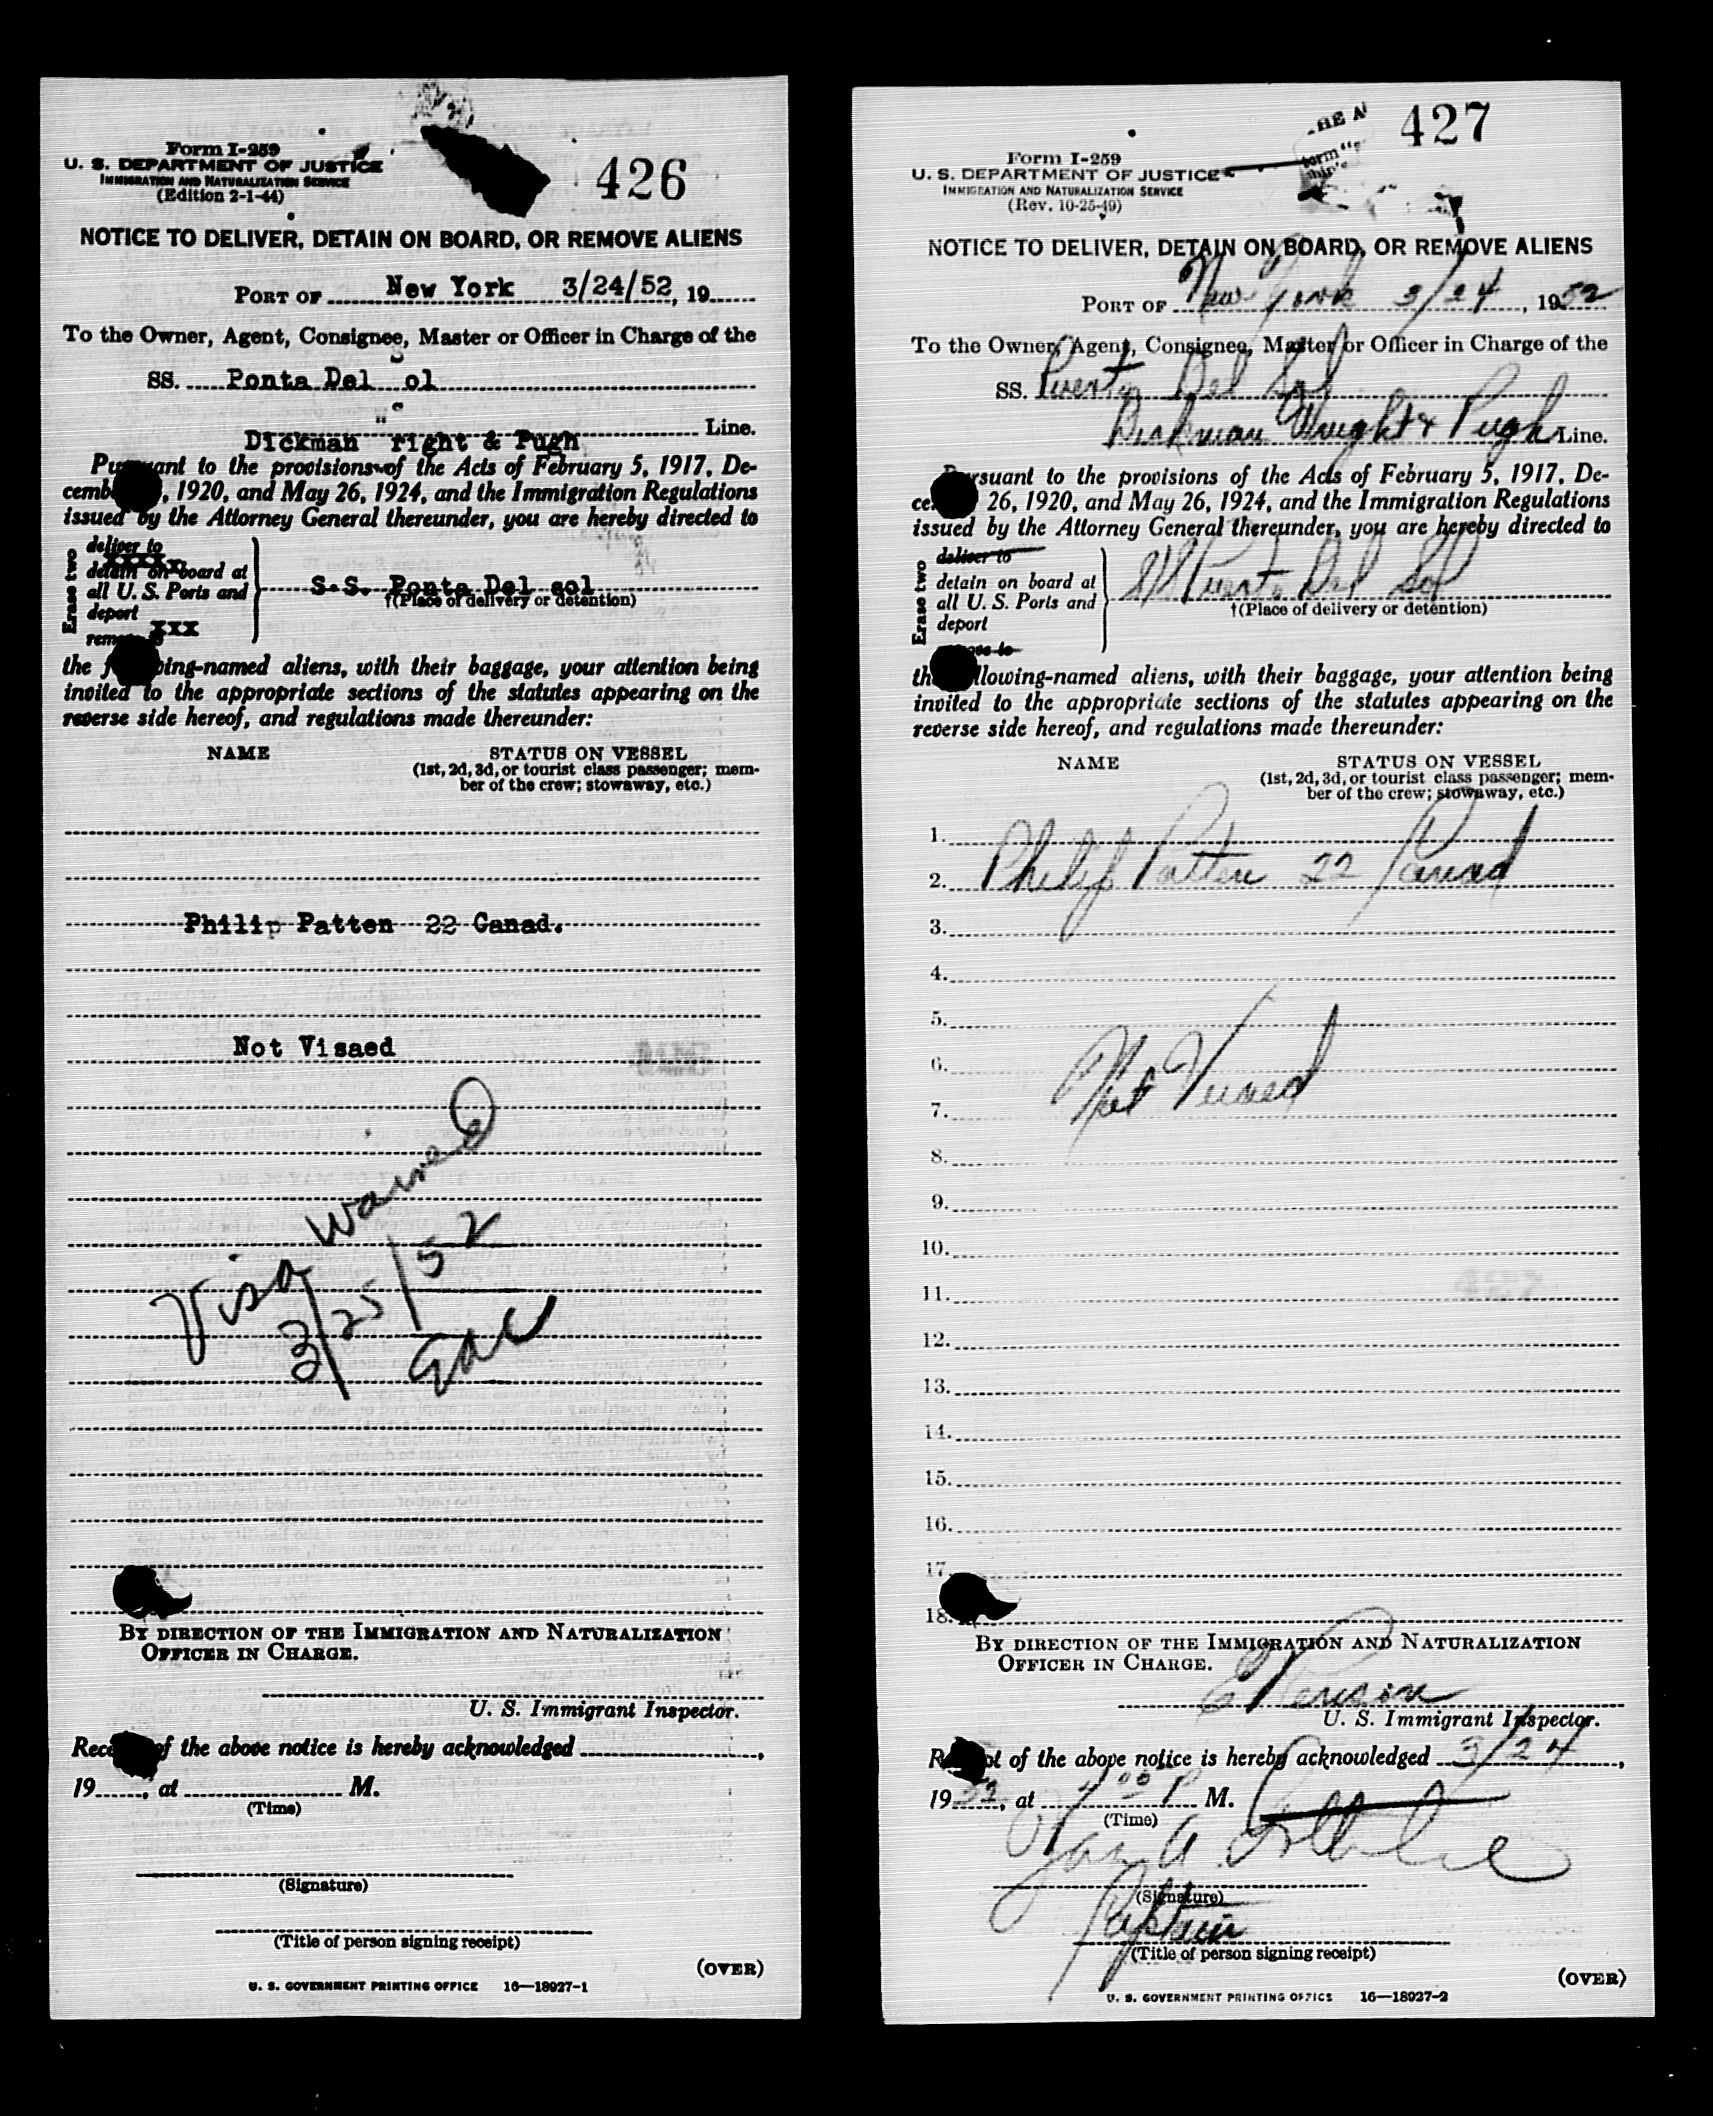 Form I-259
U. S. DEPARTMENT OF JUSTICE
IMMIGRATION AND NATURALIZATION SERVICE
(Edition 2-1-44)
426
NOTICE TO DELIVER, DETAIN ON BOARD, OR REMOVE ALIENS
PORT OF New York 3/24/52, 19
To the Owner, Agent, Consignee, Master or Officer in Charge of the
S
SS. Ponta Del ol
Dickman right & Pugh Line.
Pursuant to the provisions of the Acts of February 5, 1917, De-
cemb , 1920, and May 26, 1924, and the Immigration Regulations
issued by the Attorney General thereunder, you are hereby directed to
Erase two
deliver to
xxxxx
detain on board at
all U. S. Ports and
deport
xxx
S.S. Ponta Del sol
†(Place of delivery or detention)
the f ing-named aliens, with their baggage, your attention being
invited to the appropriate sections of the statutes appearing on the
reverse side hereof, and regulations made thereunder:
NAME STATUS ON VESSEL
(1st, 2d, 3d, or tourist class passenger; mem-
ber of the crew; stowaway, etc.)
Philip Patten 22 Canad.
Not Visaed
Visa waived
3/25/52
BY DIRECTION OF THE IMMIGRATION AND NATURALIZATION
OFFICER IN CHARGE.
U. S. Immigrant Inspector.
Rece of the above notice is hereby acknowledged ,
19 , at M.
(Time)
(Signature)
(Title of person signing receipt)
(OVER)
U. S. GOVERNMENT PRINTING OFFICE 16—18927-1
427
Form I-259
U. S. DEPARTMENT OF JUSTICE
IMMIGRATION AND NATURALIZATION SERVICE
(Rev. 10-25-49)
NOTICE TO DELIVER, DETAIN ON BOARD, OR REMOVE ALIENS
PORT OF New York 3/24, 1952
To the Owner, Agent, Consignee, Master or Officer in Charge of the
SS. Puerto Del Sol
Dickman Wright & Pugh Line.
Pursuant to the provisions of the Acts of February 5, 1917, De-
ce 26, 1920, and May 26, 1924, and the Immigration Regulations
issued by the Attorney General thereunder, you are hereby directed to
Erase two
deliver to
detain on board at
all U. S. Ports and
deport
S/S Puerto Del Sol
†(Place of delivery or detention)
th llowing-named aliens, with their baggage, your attention being
invited to the appropriate sections of the statutes appearing on the
reverse side hereof, and regulations made thereunder:
NAME STATUS ON VESSEL
(1st, 2d, 3d, or tourist class passenger; mem-
ber of the crew; stowaway, etc.)
1.
2. Philip Patten 22 Canad
3.
4.
5.
6.
7. Not Visaed
8.
9.
10.
11.
12.
13.
14.
15.
16.
17.
18.
BY DIRECTION OF THE IMMIGRATION AND NATURALIZATION
OFFICER IN CHARGE.
U. S. Immigrant Inspector.
R pt of the above notice is hereby acknowledged 3/24,
1952, at P M.
(Time)
(Signature)
Captain
(Title of person signing receipt)
(OVER)
U. S. GOVERNMENT PRINTING OFFICE 16—18927-2